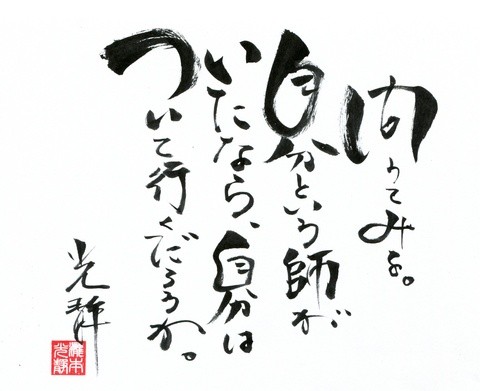 問うてみよ。
自分という師が
いたなら、自分は
ついて行くだろうか。